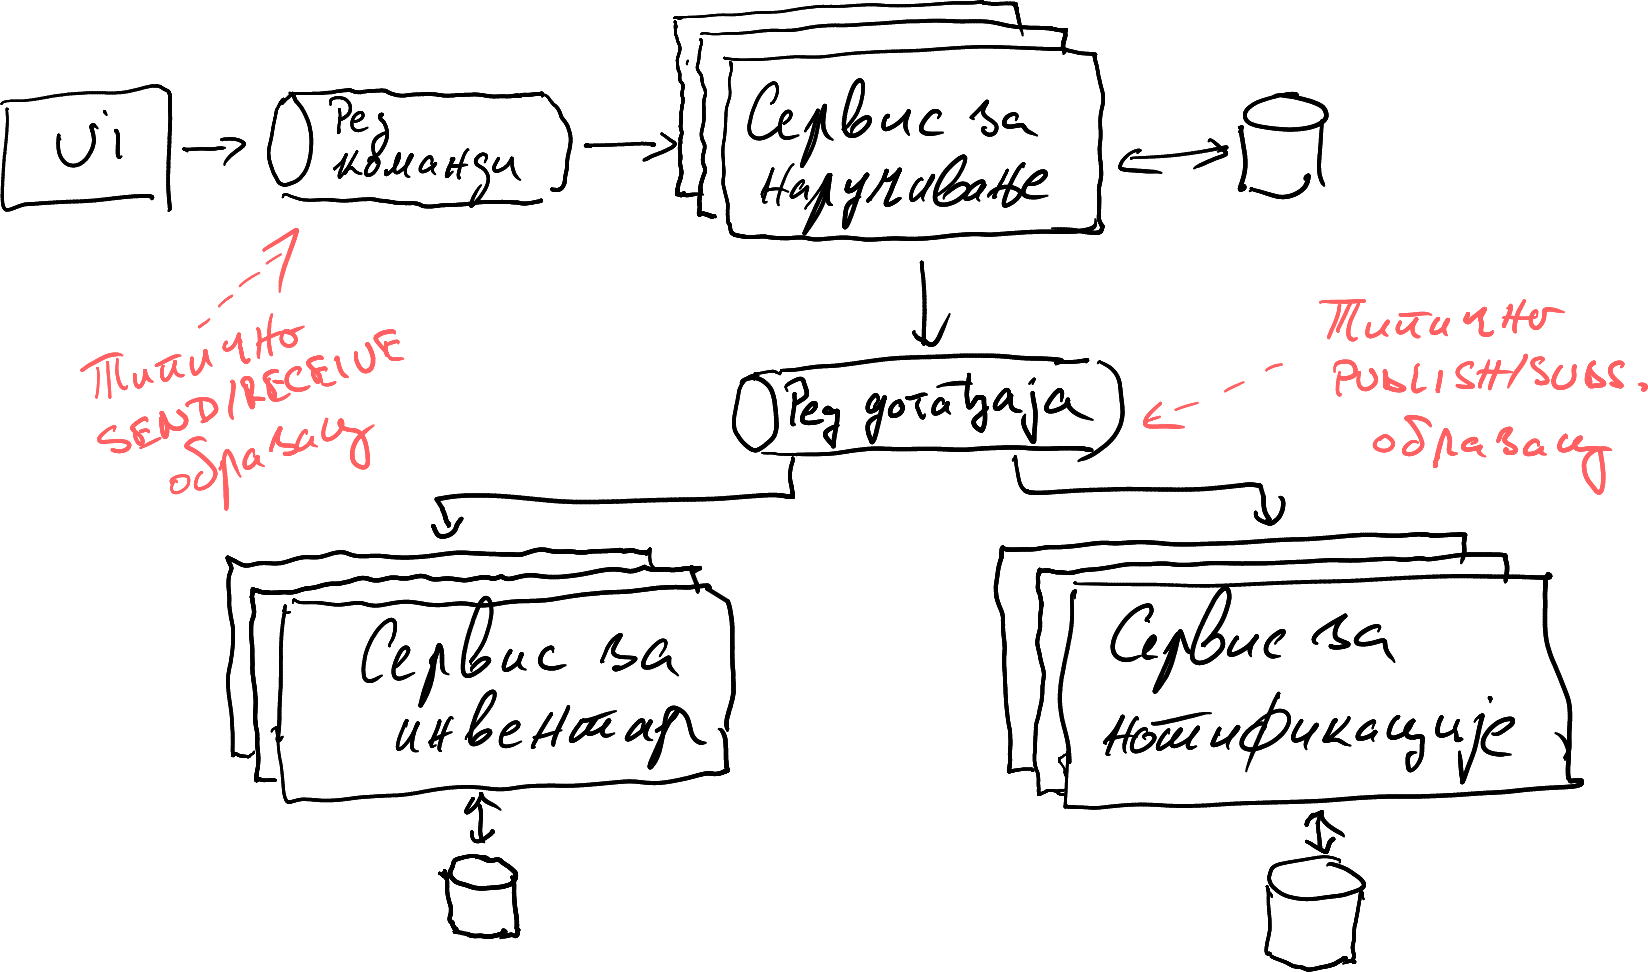 Ui
Ред
команди
Сервис за
наручивање
Типично
SEND/RECEIVE
образац
Ред догађаја
Типично
PUBLISH/SUBS.
образац
Сервис за
инвентар
Сервис за
нотификације